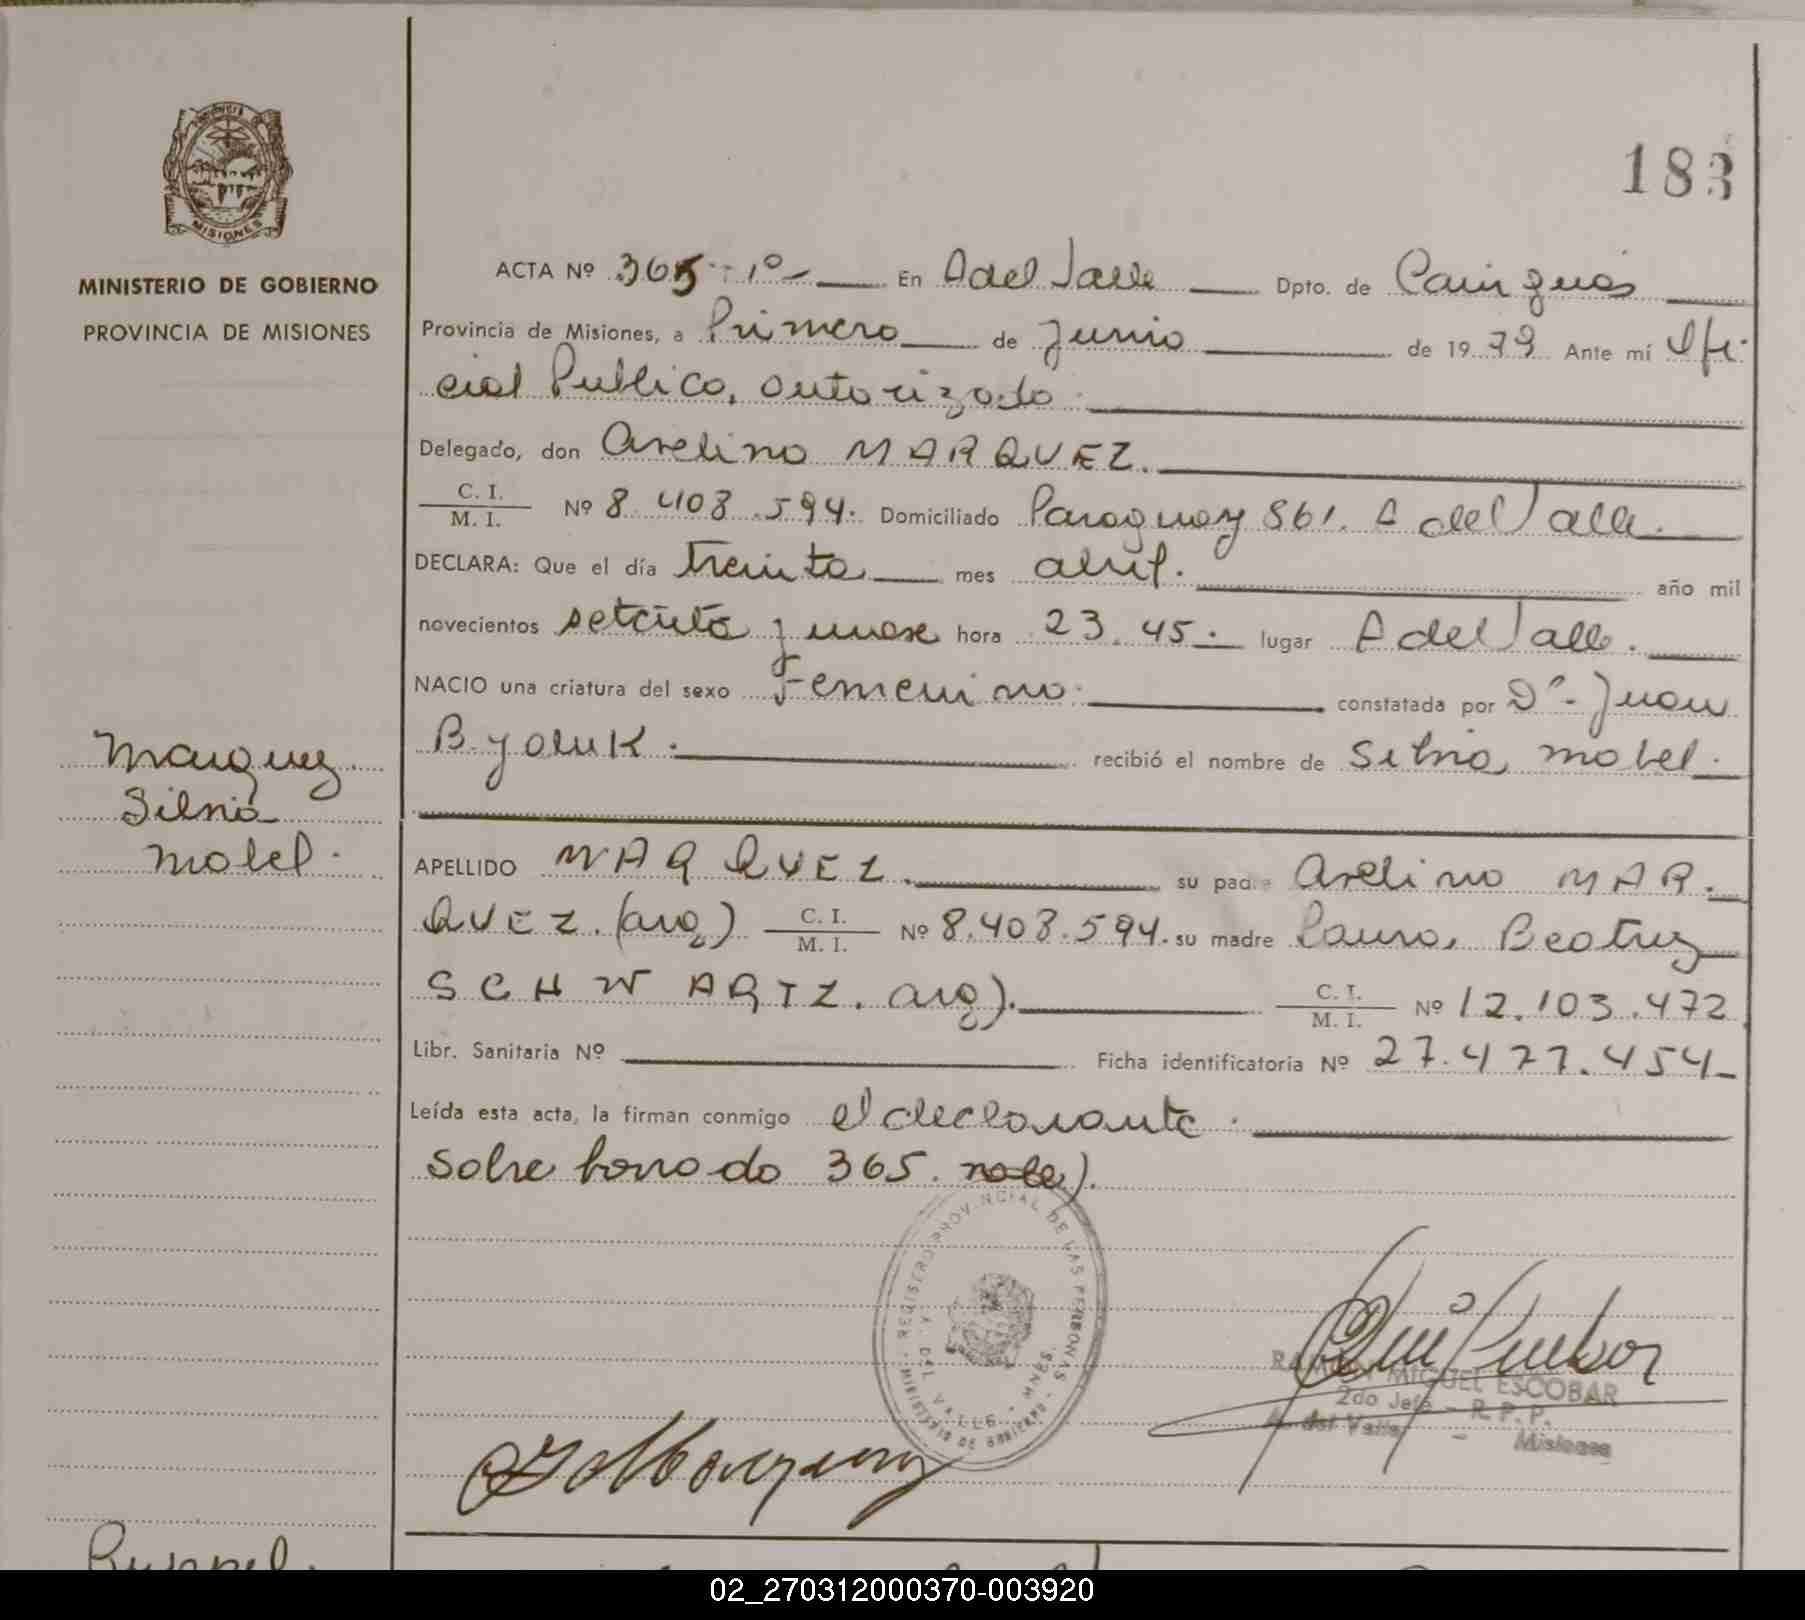 183
MINISTERIO DE GOBIERNO
PROVINCIA DE MISIONES
ACTA Nº 365 - 1º - En A del Valle Dpto. de Cainguás
Provincia de Misiones, a Primero de Junio de 1979 Ante mí Ofi-
cial Publico, autorizado.
Delegado, don Avelino MARQUEZ.
C. I.
M. I. Nº 8.408.594. Domiciliado Paraguay 861. A del Valle.
DECLARA: Que el día treinta mes abril. año mil
novecientos setenta y nueve hora 23.45. lugar A del Valle.
NACIO una criatura del sexo Femenino. constatada por Dr. Juan
Byaluk. recibió el nombre de Silvia Mabel.
Marquez
Silvia
Mabel.
APELLIDO MARQUEZ. su padre Avelino MAR-
QUEZ. (arg) C. I.
M. I. Nº 8.408.594. su madre Laura Beatriz
SCHWARTZ. arg). C. I.
M. I. Nº 12.103.472
Libr. Sanitaria Nº Ficha identificatoria Nº 27.477.454
Leída esta acta, la firman conmigo el declarante.
Sobre borrado 365. vale).
REGISTRO PROVINCIAL DE LAS PERSONAS
MINISTERIO DE GOBIERNO
A. DEL VALLE - MNES.
RAMON MIGUEL ESCOBAR
2do Jefe - R. P. P.
A. del Valle - Misiones
02_270312000370-003920